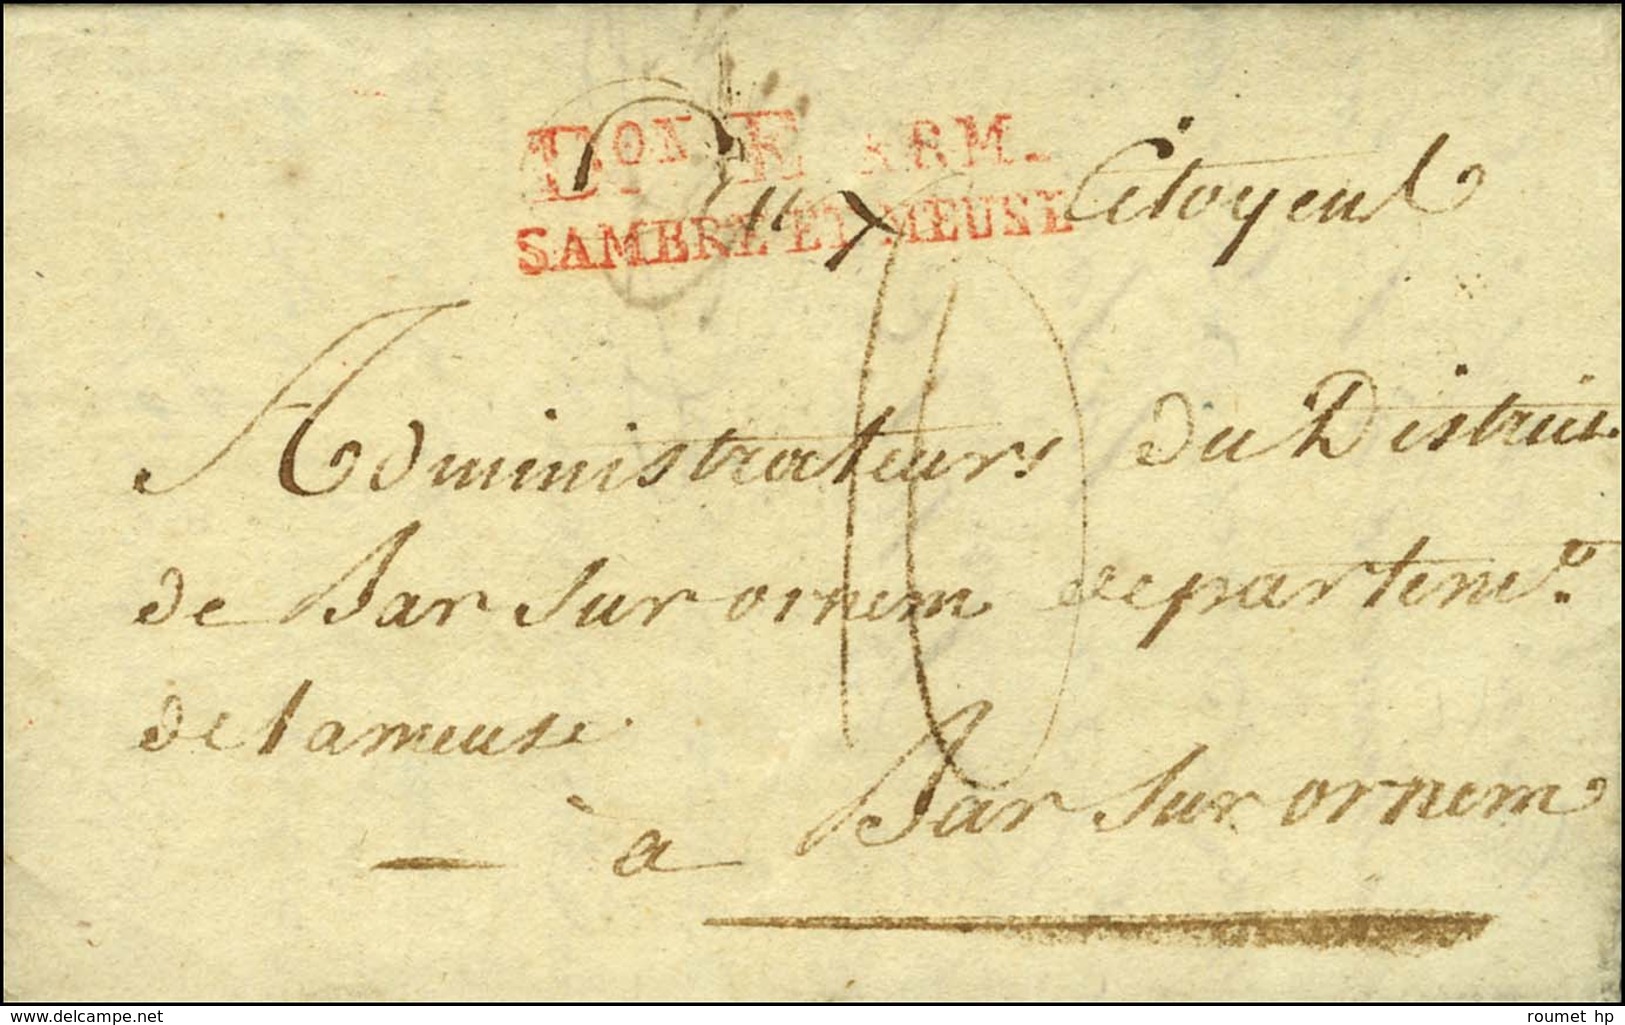 Don E ARM.
SAMBRE ET MEUSE
Aux Citoyens
10
Administrateurs du District
de Bar sur ornem departemt
de lameuse
à Bar sur ornem
www.delcampe.net
roumet hp